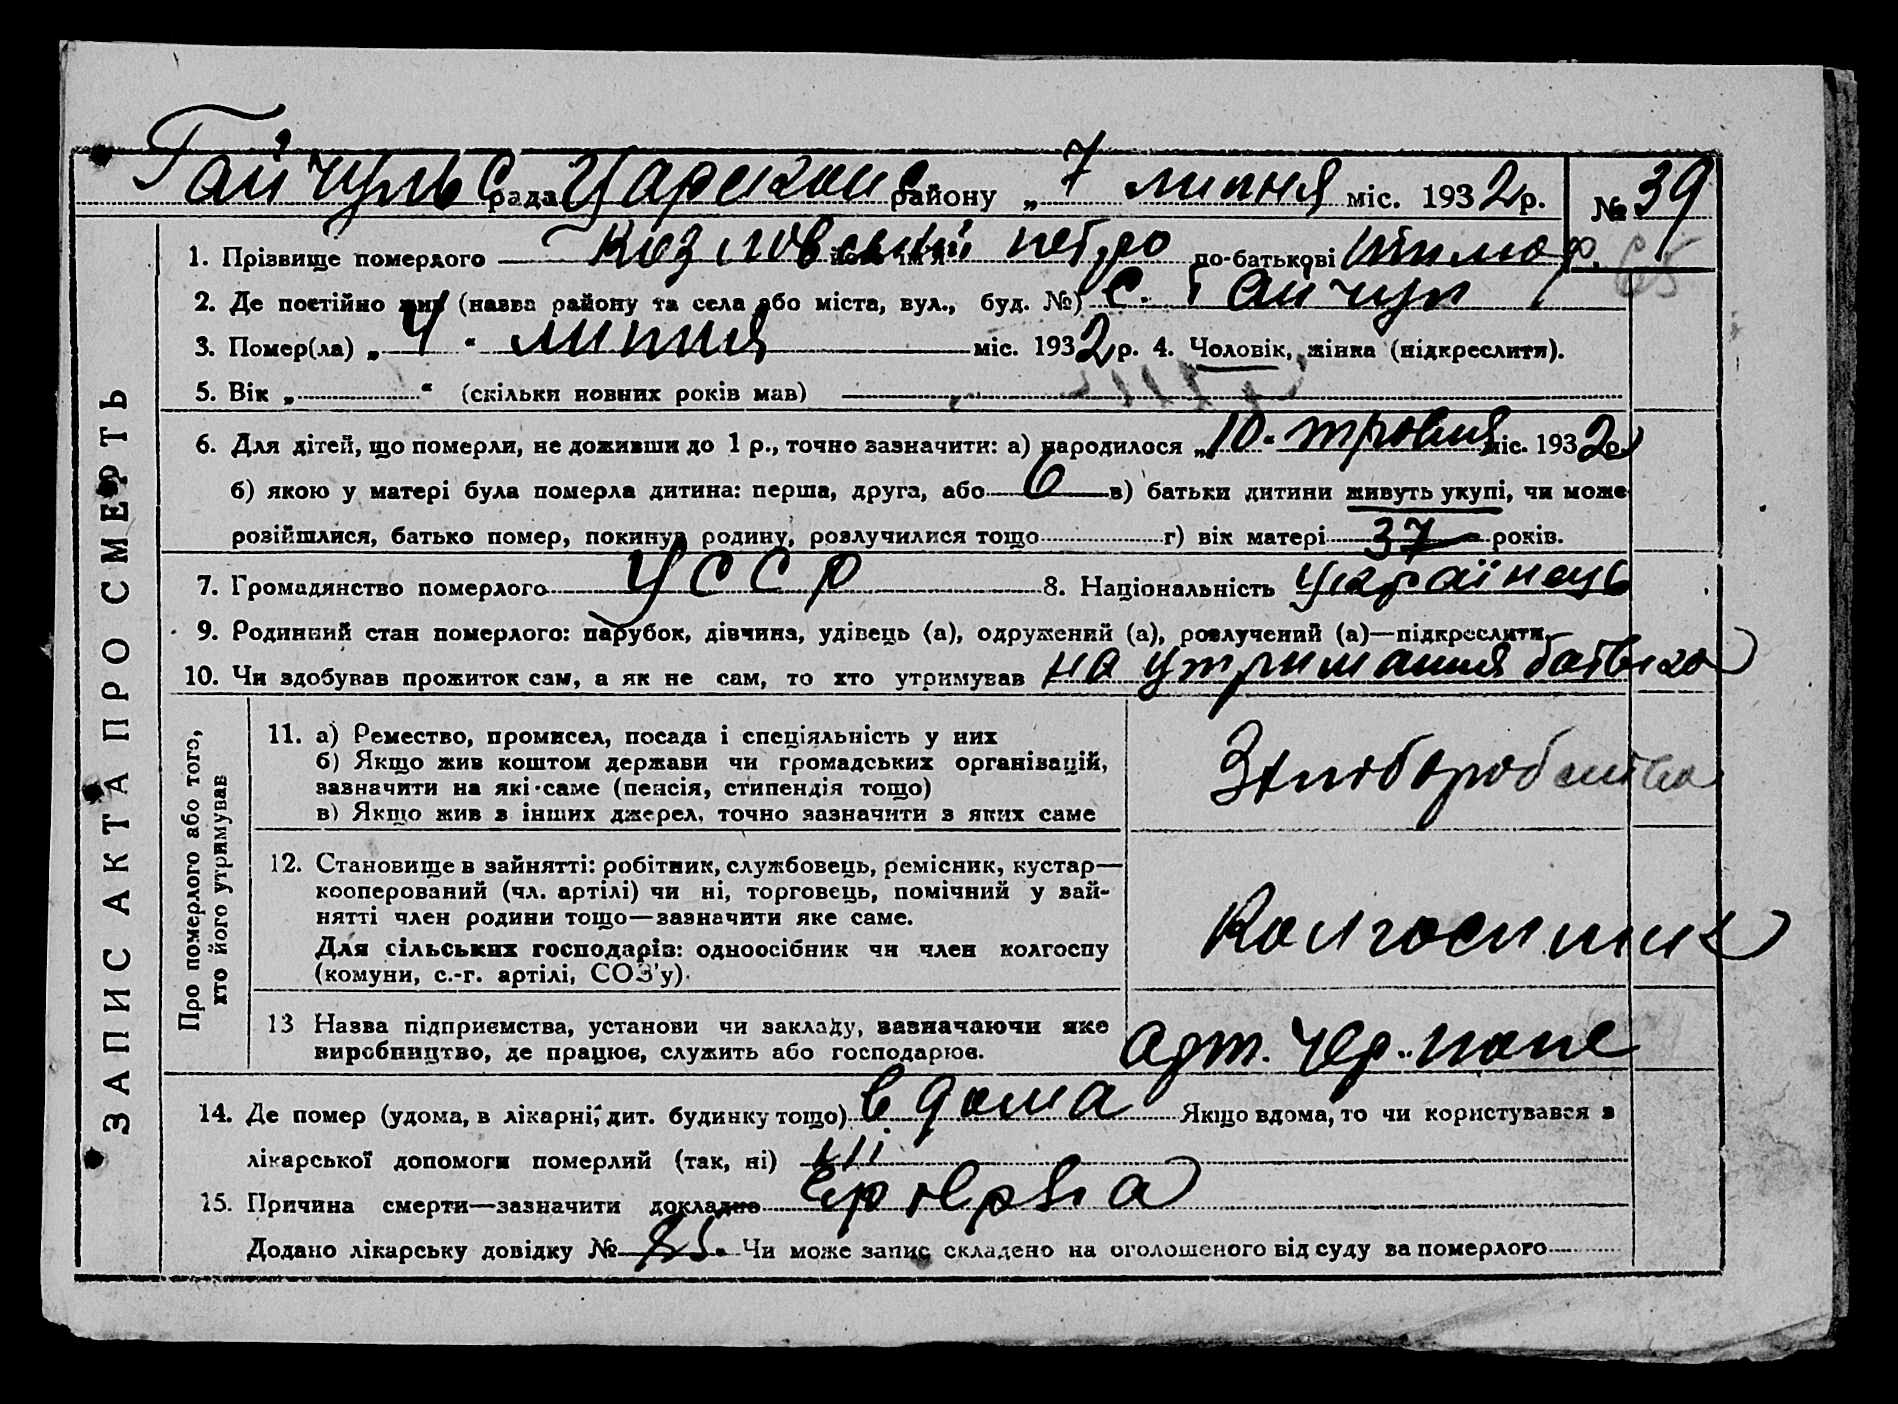 Гайчульс рада Царекон району „ 7 липня міс. 1932 р. № 39
1. Прізвище померлого Козловський ім'я петро по-батькові
65
2. Де постійно жив (назва району та села або міста, вул., буд. №) с. Гайчул
3. Помер(ла) „ 4 " липня міс. 1932 р. 4. Чоловік, жінка (підкреслити).
5. Вік „ " (скільки повних років мав)
6. Для дітей, що померли, не доживши до 1 р., точно зазначити: а) народилося „ 10 " травня міс. 1932 р.
б) якою у матері була померла дитина: перша, друга, або 6 в) батьки дитини живуть укупі, чи може
розійшлися, батько помер, покинув родину, розлучилися тощо г) вік матері 37 років.
7. Громадянство померлого УССР 8. Національність українець
9. Родинний стан померлого: парубок, дівчина, удівець (а), одружений (а), розлучений (а)—підкреслити.
10. Чи здобував прожиток сам, а як не сам, то хто утримував на утримання батька
ЗАПИС АКТА ПРО СМЕРТЬ
Про померлого або того,
хто його утримував
11. а) Ремество, промисел, посада і спеціяльність у них
б) Якщо жив коштом держави чи громадських організацій,
зазначити на які-саме (пенсія, стипендія тощо)
в) Якщо жив з інших джерел, точно зазначити з яких саме
12. Становище в зайнятті: робітник, службовець, ремісник, кустар—
кооперований (чл. артілі) чи ні, торговець, помічний у зай-
нятті член родини тощо—зазначити яке саме.
Для сільських господарів: одноосібник чи член колгоспу
(комуни, с.-г. артілі, СОЗ'у).
Колгоспник
13 Назва підприємства, установи чи закладу, зазначаючи яке
виробництво, де працює, служить або господарює.
арт. Чер. поле
14. Де помер (удома, в лікарні, дит. будинку тощо) в дома Якщо вдома, то чи користувався з
лікарської допомоги померлий (так, ні) ні
15. Причина смерти—зазначити докладно
Додано лікарську довідку № 85 Чи може запис складено на оголошеного від суду за померлого